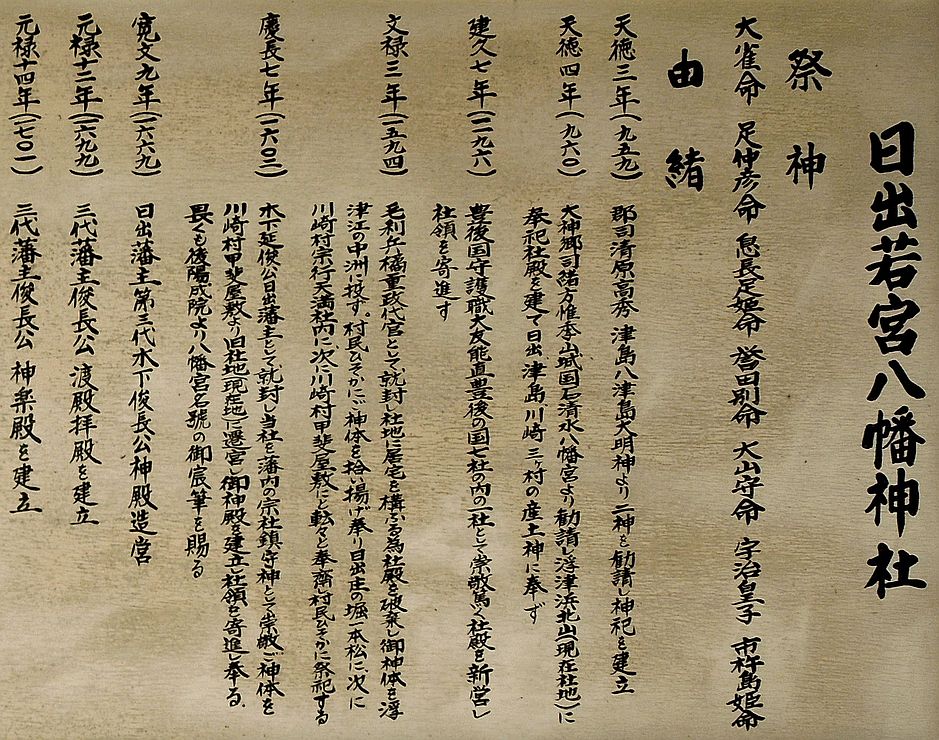 日出若宮八幡神社
祭神
大雀命 足仲彦命 息長足姫命 誉田別命 大山守命 宇治皇子 市杵島姫命
由緒
天徳三年(九五九) 郡司清原高秀 津島八津島大明神より二神を勧請し神祀を建立
天徳四年(九六〇) 大神郷司緒方惟李山城国石清水八幡宮より勧請し浮津浜北山(現在社地)に
奉祀社殿を建て日出 津島 川崎 三ヶ村の産土神に奉ず
建久七年(一一九六) 豊後国守護職大友能直豊後の国七社の内の一社として崇敬篤く社殿を新営し
社領を寄進す
文禄三年(一五九四) 毛利兵橘重政代官として就封し社地に居宅を構ふる為社殿を破棄し御神体を浮
津江の中洲に投す。村民ひそかに御神体を拾い揚げ奉り日出庄の堀一本松に、次に
川崎村宗行天満社内に次に川崎村甲斐屋敷にと転々と奉齋し村民ひそかに祭祀する
慶長七年(一六〇二) 木下延俊公日出藩主として就封し当社を藩内の宗社鎮守神として崇敬ご神体を
川崎村甲斐屋敷より旧社地(現在地)に遷宮し御神殿を建立し社領を寄進し奉る、
畏くも後陽成院より八幡宮名號の御宸筆を賜る
寛文九年(一六六九) 日出藩主第三代木下俊長公神殿造営
元禄十二年(一六九九) 三代藩主俊長公 渡殿拝殿を建立
元禄十四年(一七〇一) 三代藩主俊長公 神楽殿を建立